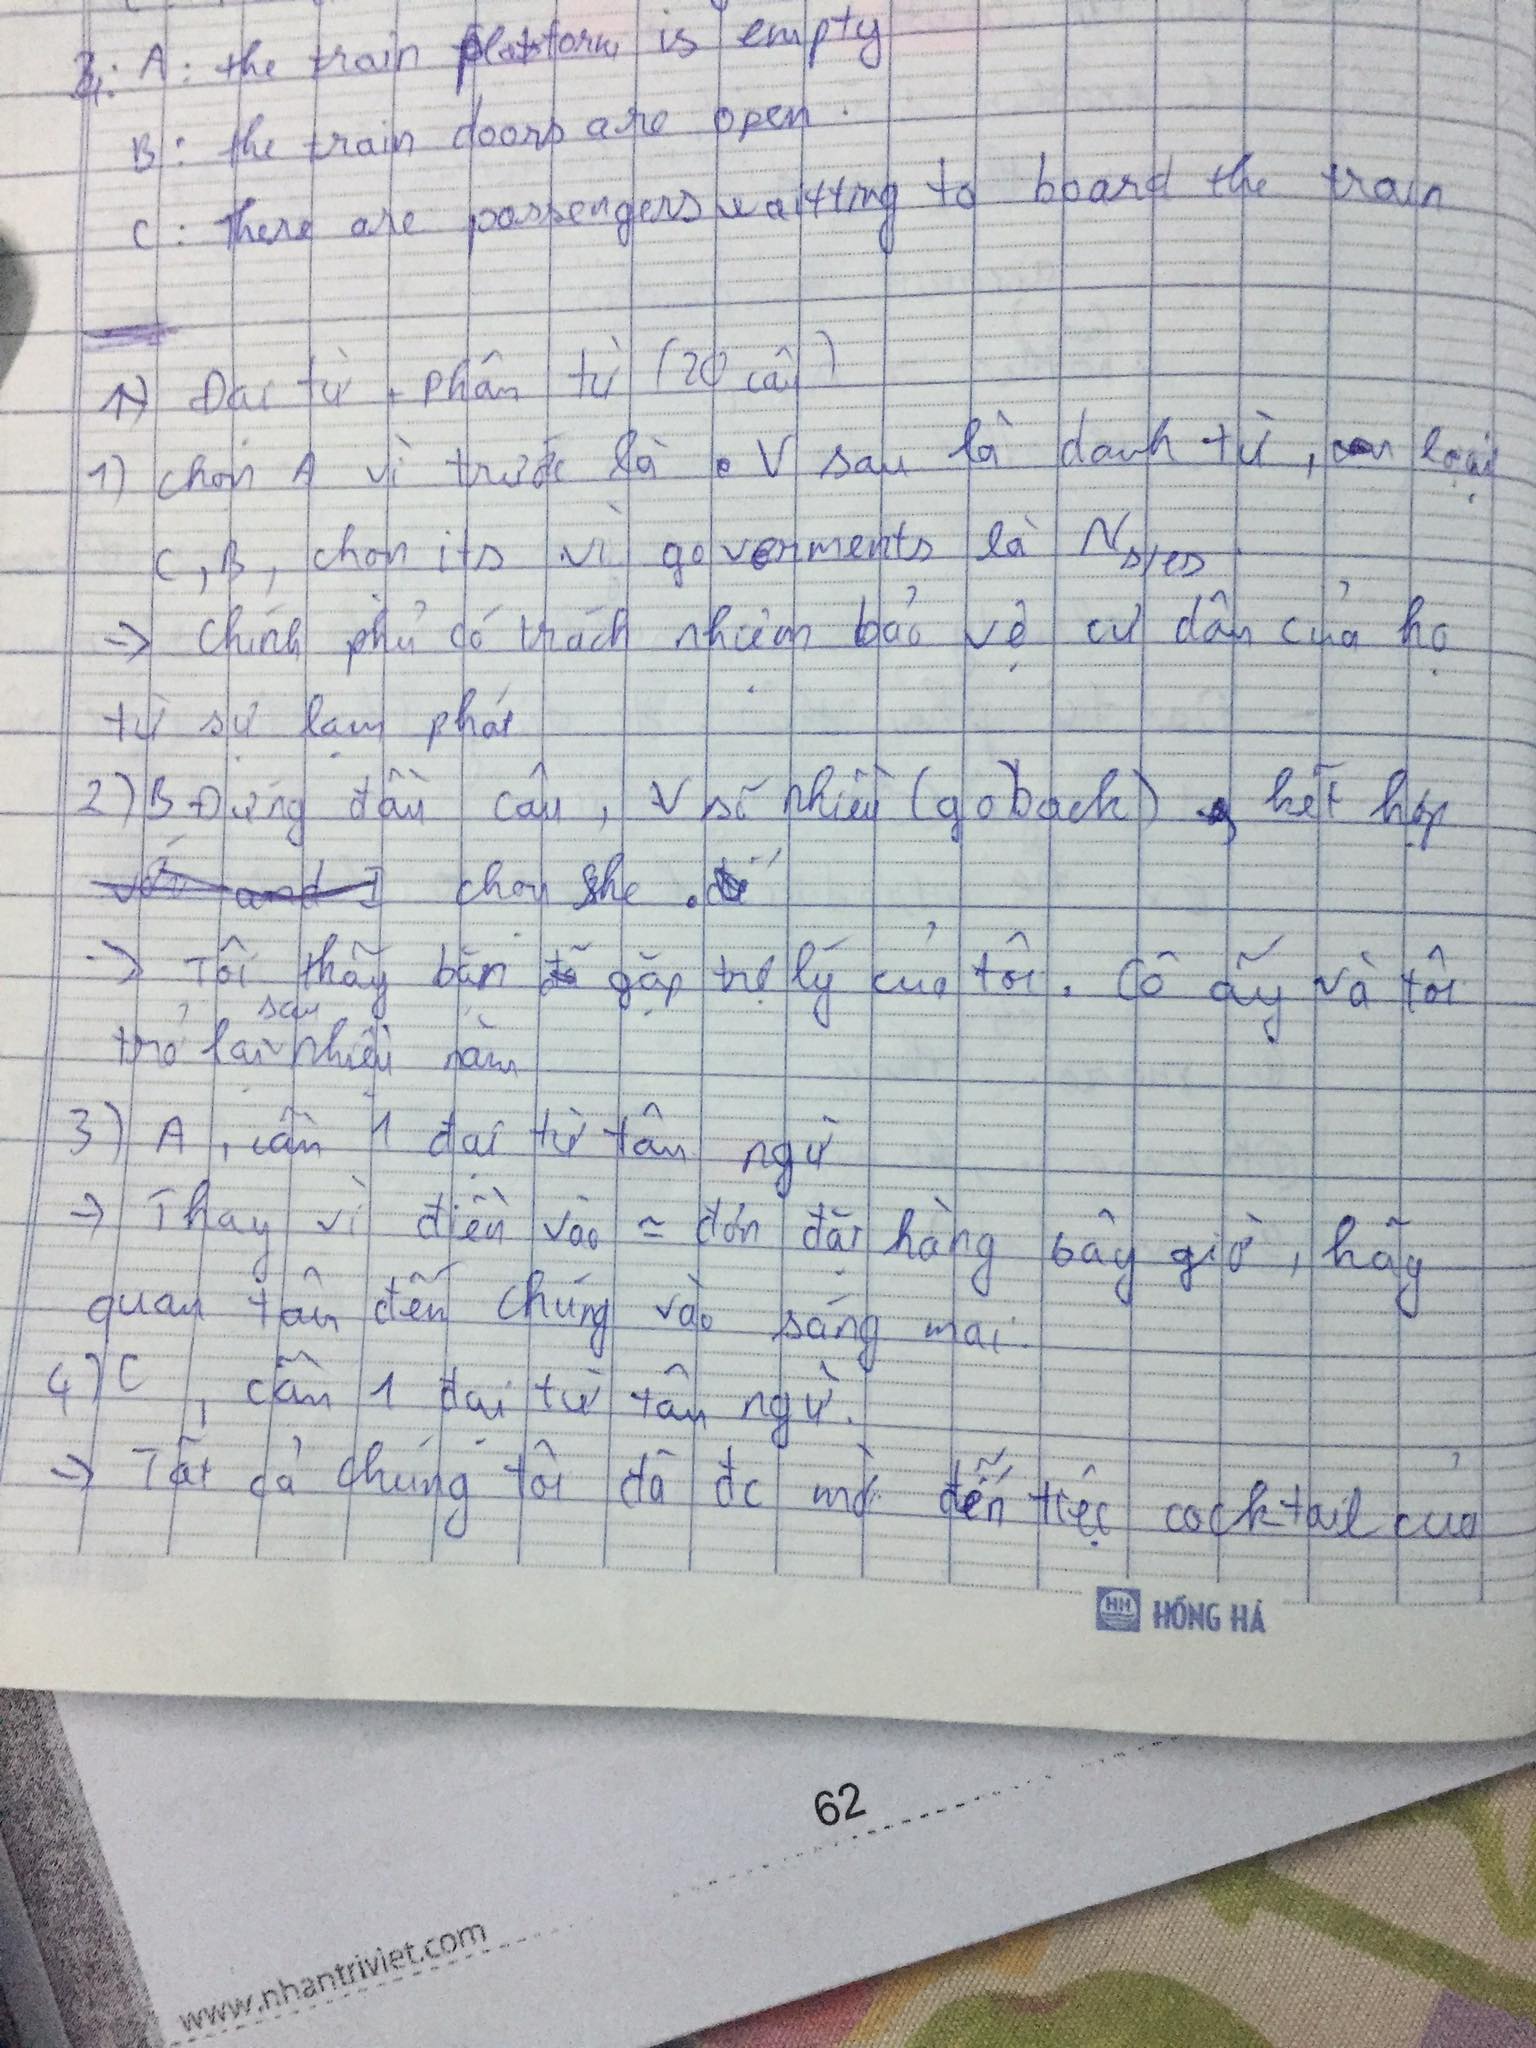 3: A: the train platform is empty
B: the train doors are open.
C: There are passengers waitting to board the train
1) Đại từ + phân từ (20 câu)
1) chọn A vì trước là V sau là danh từ, loại
C, B, chọn its vì goverments là Ns/es
-> Chính phủ có trách nhiệm bảo vệ cư dân của họ
từ sự lạm phát
2) B Đứng đầu câu, V số nhiều (go back) kết hợp
với and I chọn she.
-> Tôi thấy bạn gặp trợ lý của tôi. Cô ấy và tôi
trở lại sau nhiều năm
3) A, cần 1 đại từ tân ngữ
-> Thay vì điền vào = đơn đặt hàng bây giờ, hãy
quan tâm đến chúng vào sáng mai.
4) C, cần 1 đại từ tân ngữ.
-> Tất cả chúng tôi đã đc mời đến tiệc cocktail của
HH HỒNG HÀ
62
www.nhantriviet.com